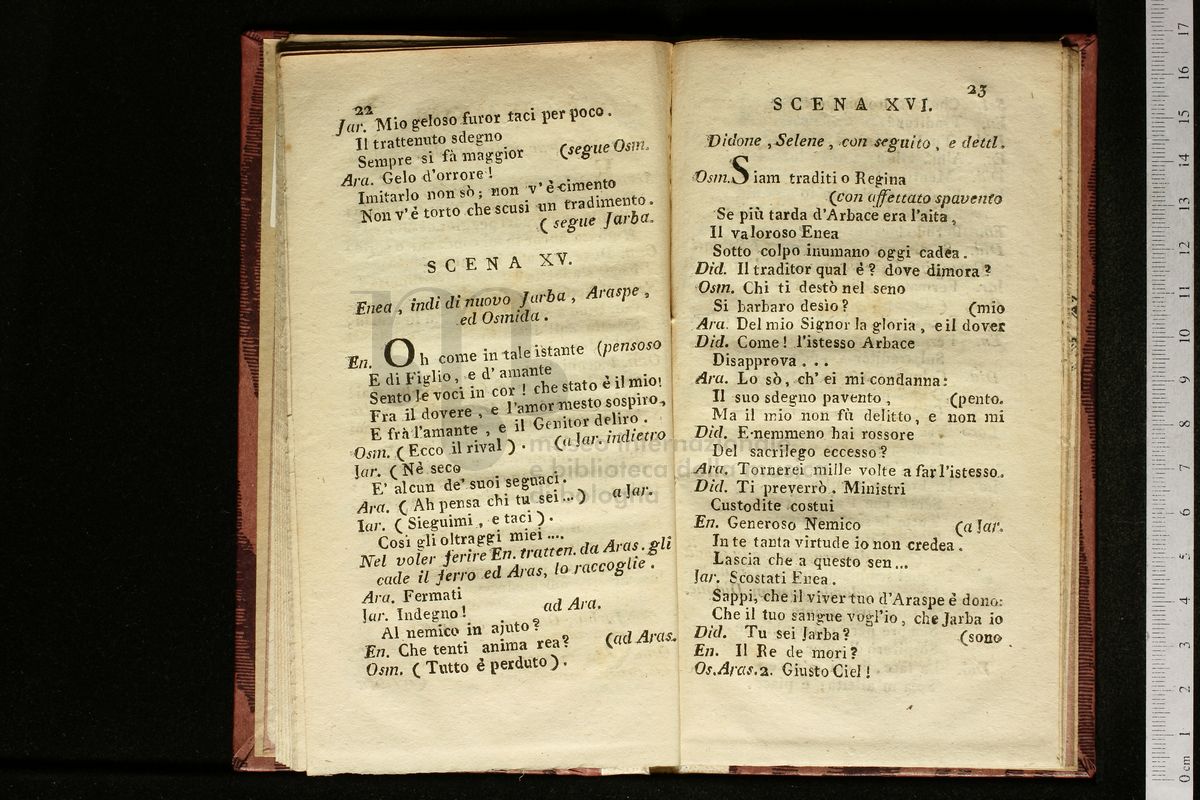 22
Jar. Mio geloso furor taci per poco.
Il trattenuto sdegno
Sempre si fà maggior (segue Osm.
Ara. Gelo d'orrore!
Imitarlo non sò; non v'è cimento
Non v'è torto che scusi un tradimento.
( segue Jarba.
SCENA XV.
Enea, indi di nuovo Jarba, Araspe,
ed Osmida.
En. Oh come in tale istante (pensoso
E di Figlio, e d'amante
Sento le voci in cor! che stato è il mio!
Fra il dovere, e l'amor mesto sospiro,
E frà l'amante, e il Genitor deliro.
Osm. (Ecco il rival). (a Jar. indietro
Jar. (Nè seco
E' alcun de' suoi seguaci.
Ara. (Ah pensa chi tu sei...) a Jar.
Iar. (Sieguimi, e taci).
Così gli oltraggi miei....
Nel voler ferire En. tratten. da Aras. gli
cade il ferro ed Aras, lo raccoglie.
Ara. Fermati
Jar. Indegno! ad Ara.
Al nemico in ajuto?
En. Che tenti anima rea? (ad Aras.
Osm. (Tutto è perduto).
23
SCENA XVI.
Didone, Selene, con seguito, e detti.
Osm. Siam traditi o Regina
(con affettato spavento
Se più tarda d'Arbace era l'aita,
Il valoroso Enea
Sotto colpo inumano oggi cadea.
Did. Il traditor qual è? dove dimora?
Osm. Chi ti destò nel seno
Si barbaro desìo? (mio
Ara. Del mio Signor la gloria, e il dover
Did. Come! l'istesso Arbace
Disapprova...
Ara. Lo sò, ch' ei mi condanna:
Il suo sdegno pavento, (pento.
Ma il mio non fù delitto, e non mi
Did. E nemmeno hai rossore
Del sacrilego eccesso?
Ara. Tornerei mille volte a far l'istesso.
Did. Ti preverrò. Ministri
Custodite costui
En. Generoso Nemico (a Jar.
In te tanta virtude io non credea.
Lascia che a questo sen...
Jar. Scostati Enea.
Sappi, che il viver tuo d'Araspe è dono:
Che il tuo sangue vogl'io, che Jarba io
Did. Tu sei Jarba? (sono
En. Il Re de mori?
Os. Aras. 2. Giusto Ciel!
museo internazionale
e biblioteca della musica
di bologna
0 cm 1 2 3 4 5 6 7 8 9 10 11 12 13 14 15 16 17